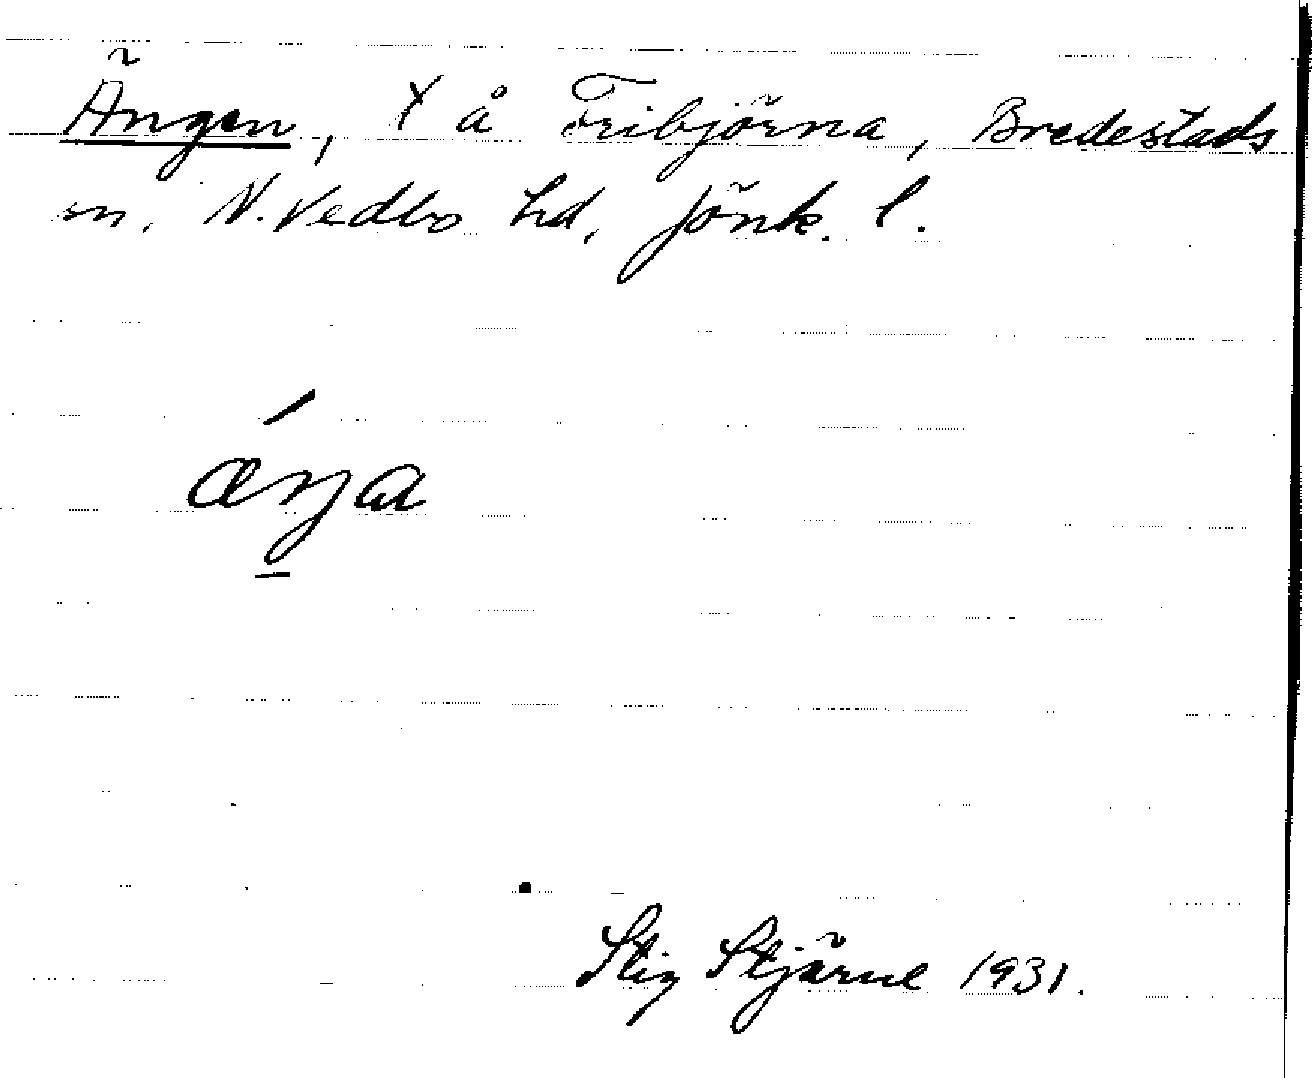 Ängen, x å Fribjörna, Bredestads
sn. N. Vedbo hd, Jönk. l.
æŋa
Stig Stjärne 1931.